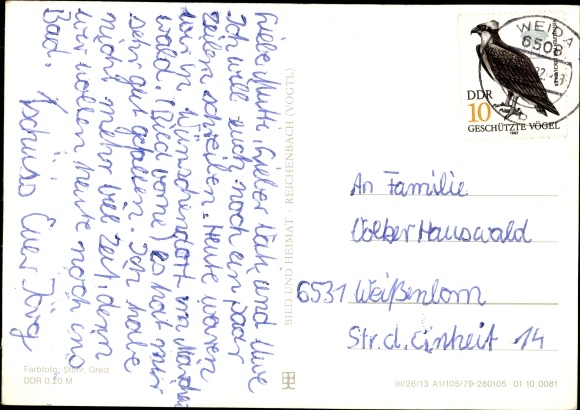 Liebe Mutti, lieber Vati und Uwe
Ich will euch noch ein paar
Zeilen schreiben. Heute waren
wir in Wünschendorf im Märchen
wald. (Bild vorne) es hat mir
sehr gut gefallen. Ich habe
nicht mehr viel Zeit, denn
wir wollen heute noch ins
Bad. Tschüss Euer Jörg
BILD UND HEIMAT · REICHENBACH (VOGTL)
Farbfoto: Stohr, Greiz
DDR 0,20 M
III/26/13 A1/105/79-280105 01 10 0081
WEIDA
6508
DDR
10
GESCHÜTZTE VÖGEL
1982
An Familie
Volker Hauswald
6531 Weißenborn
Str. d. Einheit 14